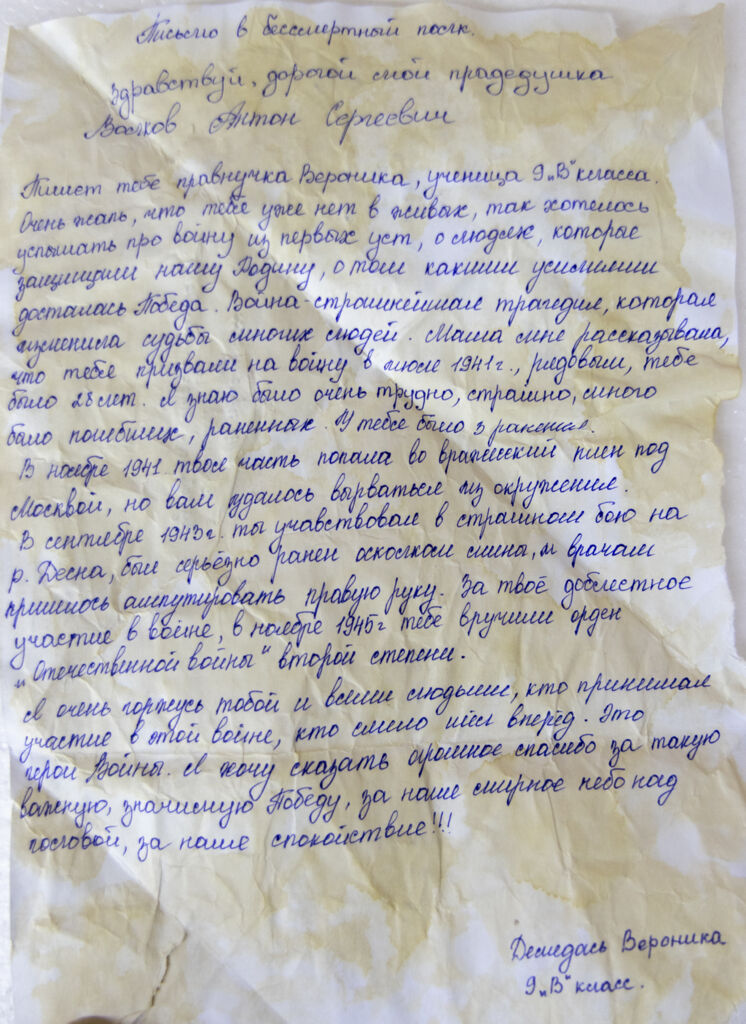 Письмо в бессмертный полк.
Здравствуй, дорогой мой прадедушка
Волков Антон Сергеевич
Пишет тебе правнучка Вероника, ученица 9 „В" класса.
Очень жаль, что тебя уже нет в живых, так хотелось
услышать про войну из первых уст, о людях, которые
защищали нашу Родину, о том какими усилиями
досталась Победа. Война - страшнейшая трагедия, которая
изменила судьбы многих людей. Мама мне рассказывала,
что тебя призвали на войну в июле 1941 г., рядовым, тебе
было 28 лет. Я знаю было очень трудно, страшно, много
было погибших, раненных. У тебя было 3 ранения.
В ноябре 1941 твоя часть попала во вражеский плен под
Москвой, но вам удалось вырваться из окружения.
В сентябре 1943 г. ты учавствовал в страшном бою на
р. Десна, был серьёзно ранен осколком мины, и врачам
пришлось ампутировать правую руку. За твоё доблестное
участие в войне, в ноябре 1945 г тебе вручили орден
„Отечественной войны" второй степени.
Я очень горжусь тобой и всеми людьми, кто принимал
участие в этой войне, кто смело шёл вперёд. Это
герои Войны. Я хочу сказать огромное спасибо за такую
важную, значимую Победу, за наше мирное небо над
головой, за наше спокойствие!!!
Вероника
9 „В" класс.